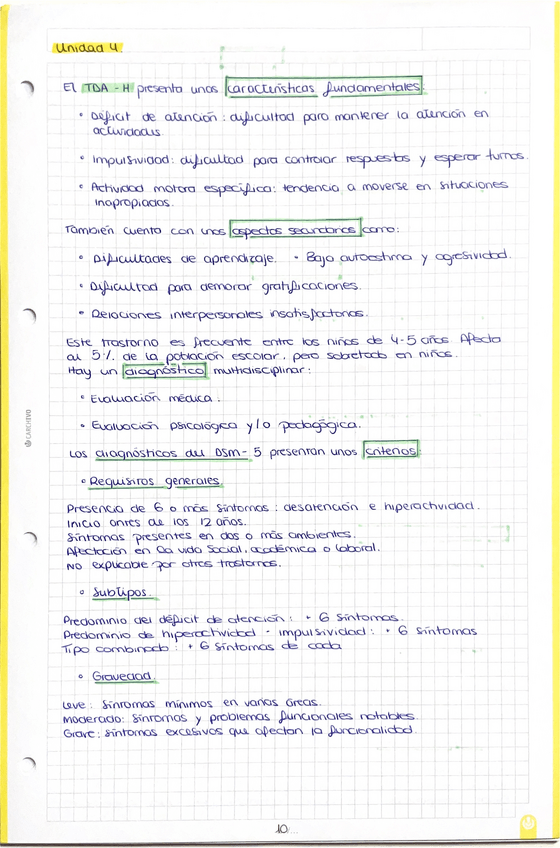 Unidad 4
El TDA-H presenta unas características fundamentales:
• Déficit de atención: dificultad para mantener la atención en
actividades
• Impulsividad: dificultad para controlar respuestas y esperar turnos.
• Actividad motora específica: tendencia a moverse en situaciones
inapropiadas.
También cuenta con unos aspectos secundarios como:
• Dificultades de aprendizaje. • Baja autoestima y agresividad.
• Dificultad para demorar gratificaciones.
• Relaciones interpersonales insatisfactorias.
Este trastorno es frecuente entre los niños de 4-5 años. Afecta
al 5% de la población escolar, pero sobretodo en niños.
Hay un diagnóstico multidisciplinar:
• Evaluación médica.
• Evaluación psicológica y/o pedagógica.
Los diagnósticos del DSM-5 presentan unos criterios:
• Requisitos generales
Presencia de 6 o más síntomas: desatención e hiperactividad.
Inicio antes de los 12 años.
Síntomas presentes en dos o más ambientes.
Afectación en la vida social, académica o laboral.
No explicable por otros trastornos.
• Subtipos.
Predominio del déficit de atención: + 6 síntomas.
Predominio de hiperactividad - impulsividad: + 6 síntomas
Tipo combinado: + 6 síntomas de cada
• Gravedad.
Leve: Síntomas mínimos en varias áreas.
Moderado: Síntomas y problemas funcionales notables.
Grave: síntomas excesivos que afectan la funcionalidad.
CARCHIVO
10